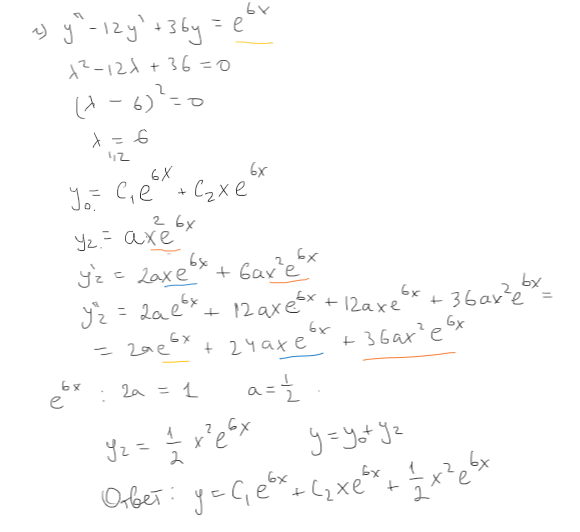 г) y'' - 12y' + 36y = e^{6x}
λ² - 12λ + 36 = 0
(λ - 6)² = 0
λ_{1,2} = 6
y_{0.} = C₁e^{6x} + C₂xe^{6x}
y_{2.} = ax²e^{6x}
y'₂ = 2axe^{6x} + 6ax²e^{6x}
y''₂ = 2ae^{6x} + 12axe^{6x} + 12axe^{6x} + 36ax²e^{6x} =
= 2ae^{6x} + 24axe^{6x} + 36ax²e^{6x}
e^{6x} : 2a = 1 a = 1/2 .
y₂ = 1/2 x²e^{6x} y = y₀ + y₂
Ответ: y = C₁e^{6x} + C₂xe^{6x} + 1/2 x²e^{6x}